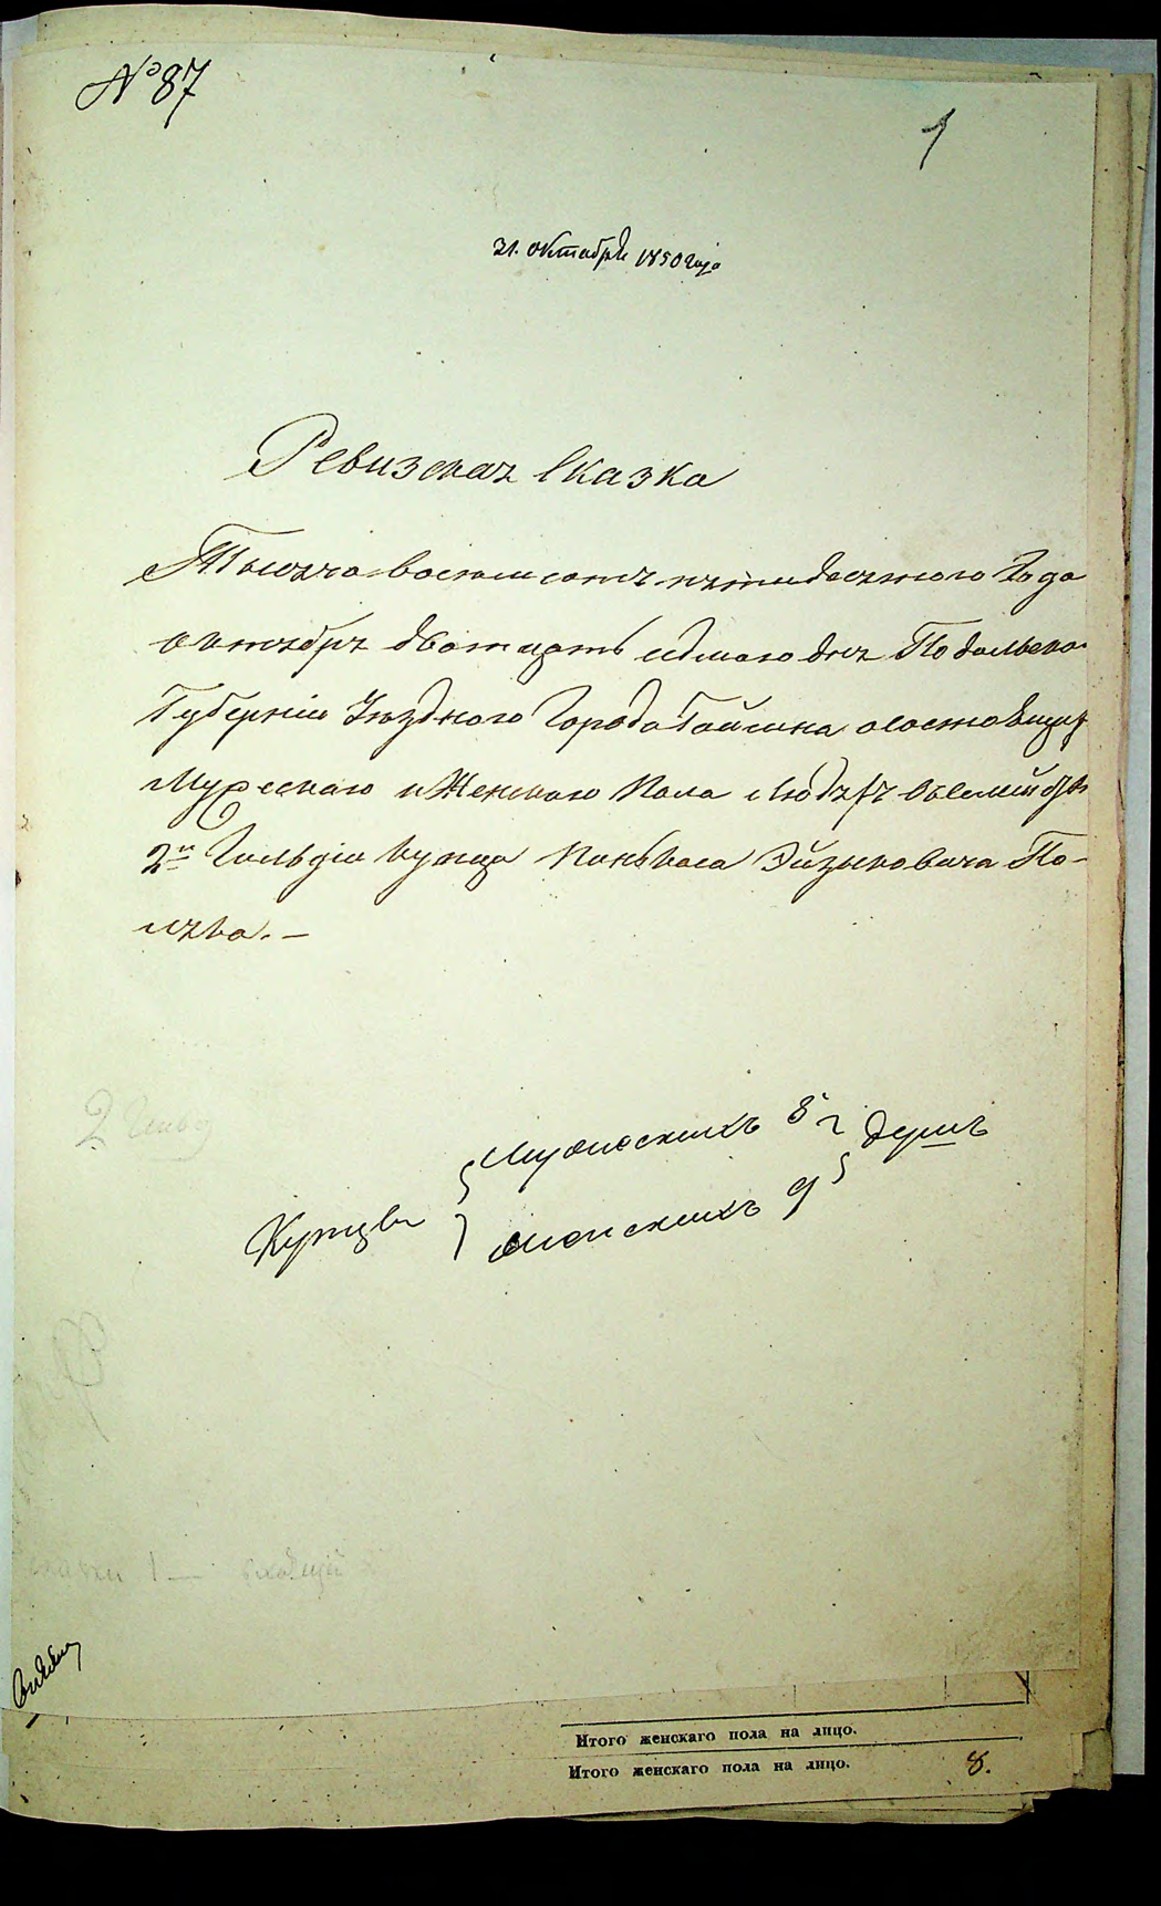 № 87
1
31. октября 1850 года
Ревизская Сказка
Тысяча восемсотъ пятидесятого Года
октября дватцать седмаго дня Подольской
Губерніи Уезднаго Города Гайсина о состоящихъ
Мужескаго и Женскаго Пола Людяхъ въ семействе
2й Гильдіи купца Пинькаса Эйзыковича По-
ляка. —
Мужескихъ 8
Купцы душъ
женскихъ 9
2 Гильд
Итого женскаго пола на лицо.
Итого женскаго пола на лицо. 8.